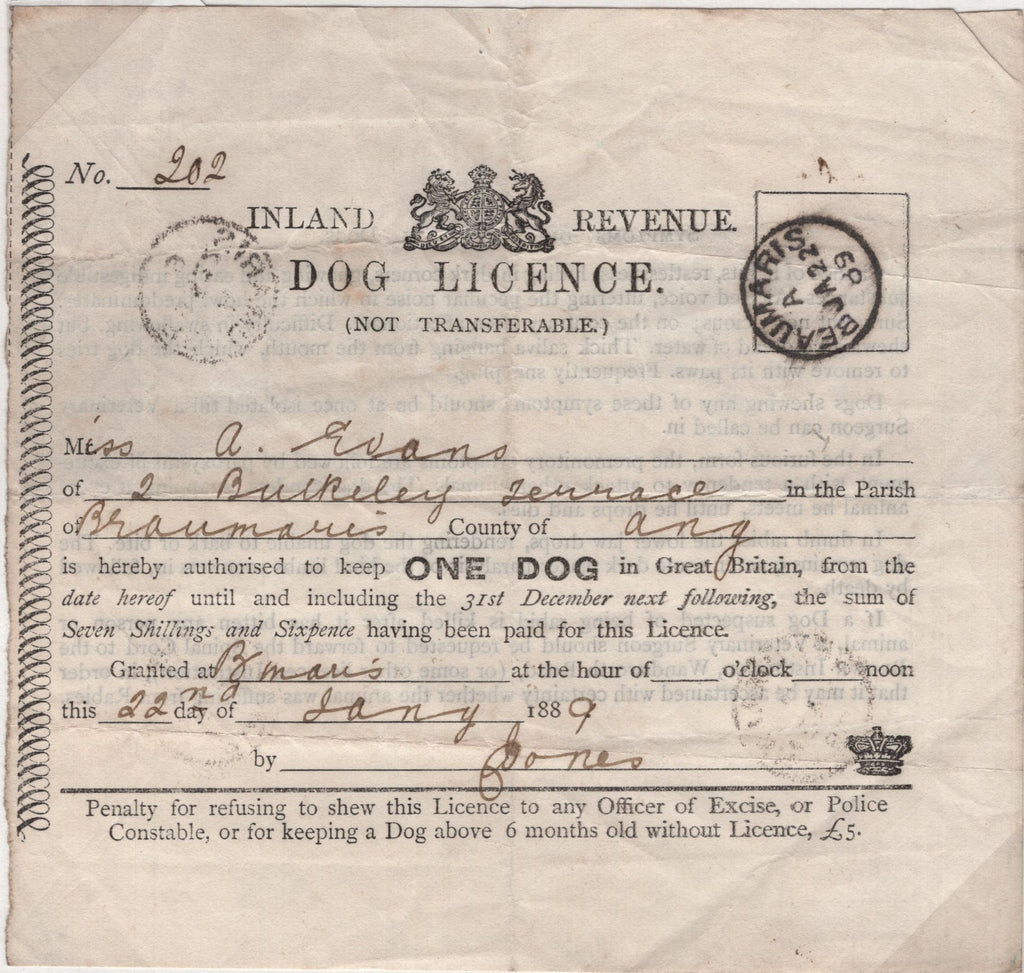 No. 202
INLAND REVENUE.
DOG LICENCE.
(NOT TRANSFERABLE.)
BEAUMARIS
A
JA 22
89
Miss A. Evans
of 2 Bulkeley Terrace in the Parish
of Beaumaris County of Ang
is hereby authorised to keep ONE DOG in Great Britain, from the
date hereof until and including the 31st December next following, the sum of
Seven Shillings and Sixpence having been paid for this Licence.
Granted at Bmaris at the hour of o'clock noon
this 22nd day of Jany 1889
by Jones
Penalty for refusing to shew this Licence to any Officer of Excise, or Police
Constable, or for keeping a Dog above 6 months old without Licence, £5.